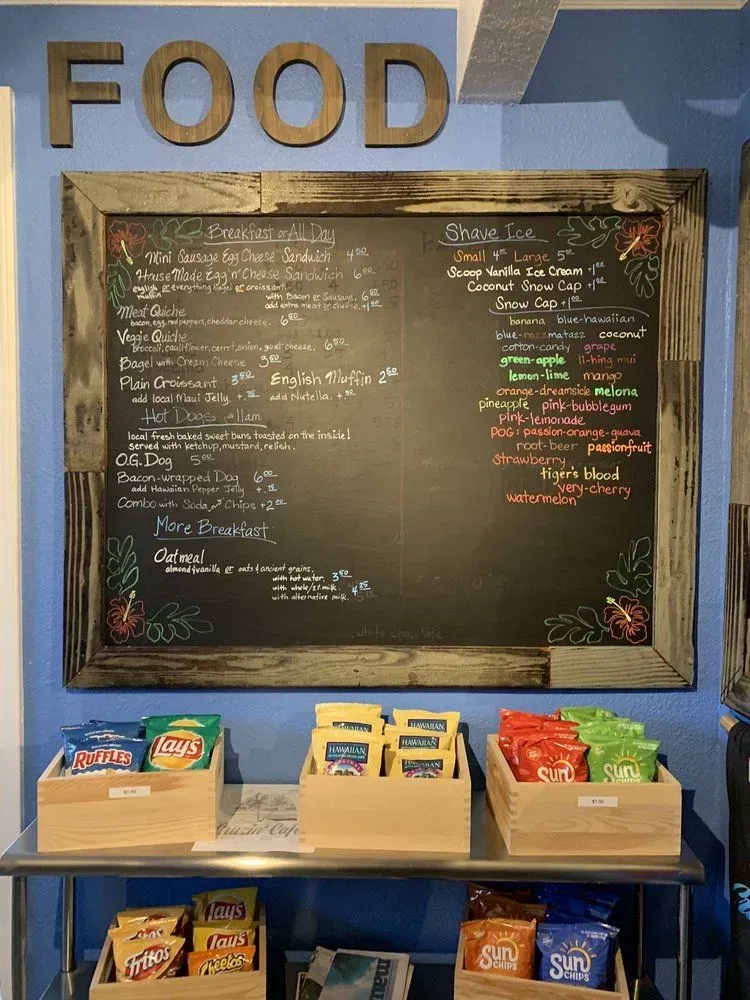 FOOD
Breakfast or All Day
Mini Sausage Egg Cheese Sandwich 4.50
House Made Egg 'n' Cheese Sandwich 6.00
english muffin or everything bagel or croissant.
with Bacon or Sausage. 6.50
add extra meat or cheese. +1.00
Meat Quiche
bacon, egg, red peppers, cheddar cheese. 6.50
Veggie Quiche
broccoli, cauliflower, carrot, onion, goat cheese. 6.50
Bagel with Cream Cheese 3.50
Plain Croissant 3.50
add local Maui Jelly. +.75
English Muffin 2.50
add Nutella. +.50
Hot Dogs 11am
local fresh baked sweet buns toasted on the inside!
served with ketchup, mustard, relish.
O.G. Dog 5.00
Bacon-wrapped Dog 6.00
add Hawaiian Pepper Jelly +.75
Combo with Soda or Chips +2.00
More Breakfast
Oatmeal
almond & vanilla or oats & ancient grains.
with hot water. 3.50
with whole/2% milk. 4.25
with alternative milk.
Shave Ice
Small 4.00 Large 5.00
Scoop Vanilla Ice Cream +1.00
Coconut Snow Cap +1.00
Snow Cap +1.00
banana blue-hawaiian
blue-razzmatazz coconut
cotton-candy grape
green-apple li-hing mui
lemon-lime mango
orange-dreamside melona
pineapple pink-bubblegum
pink-lemonade
POG: passion-orange-guava
root-beer passionfruit
strawberry
tiger's blood
very-cherry
watermelon
white chocolate
RUFFLES
Lay's
HAWAIIAN
HAWAIIAN
HAWAIIAN
HAWAIIAN
HAWAIIAN
Sun
CHIPS
Sun
CHIPS
$1.50
$1.50
Cafe
Lays
Lays
Fritos
Cheetos
Sun
CHIPS
Sun
CHIPS